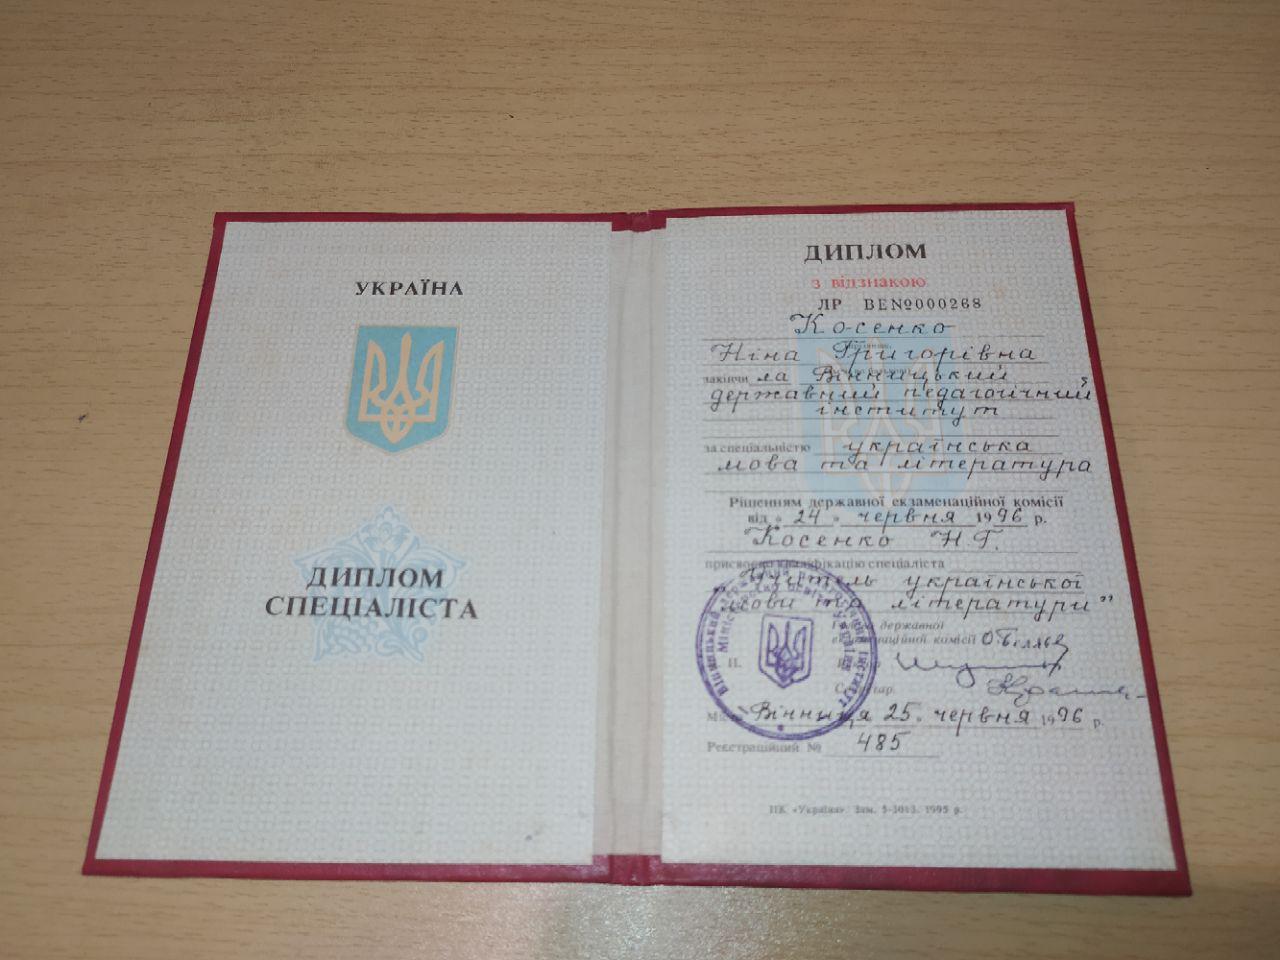 УКРАЇНА
ДИПЛОМ
СПЕЦІАЛІСТА
ДИПЛОМ
з відзнакою
ЛР ВЕ№000268
Косенко
Ніна Григорівна
закінчи ла Вінницький
державний педагогічний
інститут
за спеціальністю українська
мова та література
Рішенням державної екзаменаційної комісії
від « 24 » червня 1996 р.
Косенко Н.Г.
присвоєно кваліфікацію спеціаліста
„Учитель української
мови та літератури”
Голова державної
екзаменаційної комісії
М.П. Ректор
Секретар
Місто Вінниця 25. червня 1996 р.
Реєстраційний № 485
ПК «Україна». Зам. 5-3013. 1995 р.
Вінницький державний педагогічний інститут
Міністерство освіти України